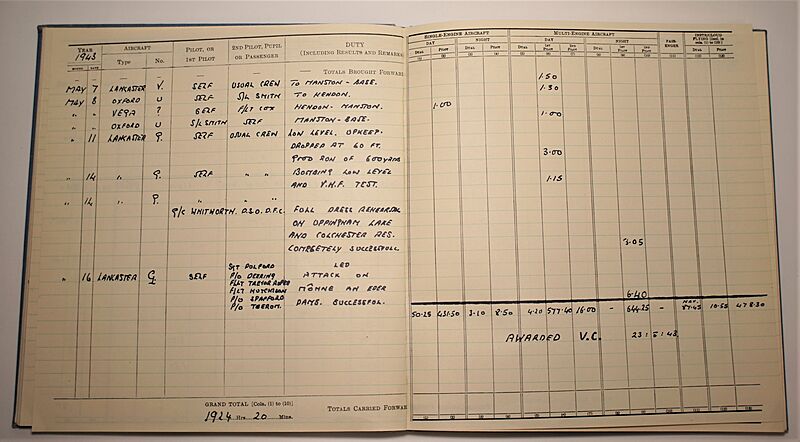 YEAR AIRCRAFT PILOT, OR 2ND PILOT, PUPIL DUTY
1943 Type No. 1ST PILOT OR PASSENGER (INCLUDING RESULTS AND REMARKS
MONTH DATE
— — — — — — TOTALS BROUGHT FORWAR
MAY 7 LANCASTER V. SELF USUAL CREW TO MANSTON - BASE.
MAY 8 OXFORD U SELF S/L SMITH TO HENDON.
" " VEGA ? SELF F/LT COX HENDON - MANSTON.
" " OXFORD U S/L SMITH SELF MANSTON - BASE.
" 11 LANCASTER G. SELF USUAL CREW LOW LEVEL. UPKEEP.
DROPPED AT 60 FT.
GOOD RUN OF 600YARDS
" 14 " G. SELF " " BOMBING LOW LEVEL
AND V.H.F TEST.
" 14 " G.
G/C WHITWORTH. D.S.O. D.F.C. FULL DRESS REHEARSAL
ON UPPINGHAM LAKE
AND COLCHESTER RES.
COMPLETELY SUCCESSFULL
" 16 LANCASTER G SELF SGT PULFORD LED
P/O DEERING ATTACK ON
F/LT TREVOR ROPER MÖHNE AN EDER
F/LT HUTCHISON DAMS. SUCCESSFUL.
P/O SPAFFORD
P/O TAERUM.
GRAND TOTAL [Cols. (1) to (10)]
1924 Hrs 20 Mins.
TOTALS CARRIED FORWAR
SINGLE-ENGINE AIRCRAFT MULTI-ENGINE AIRCRAFT
DAY NIGHT DAY NIGHT PASS-ENGER
DUAL PILOT DUAL PILOT DUAL 1ST PILOT 2ND PILOT DUAL 1ST PILOT 2ND PILOT DUAL PILOT
1.50
1.30
1.00
1.00
3.00
1.15
3.05
6.40
50.25 431.50 3.10 8.50 4.20 577.40 16.00 - 644.25 - 10.55 478.30
AWARDED V.C. 23:5:43.